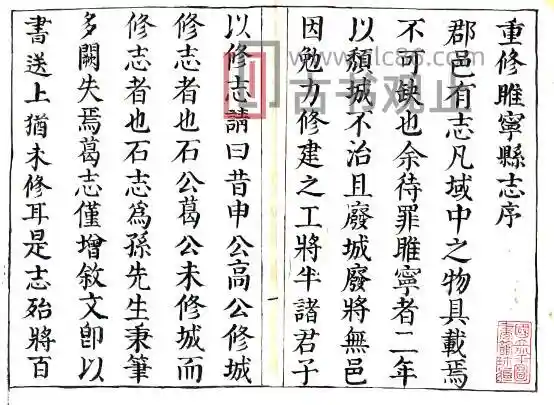 重修睢寧縣志序
郡邑有志凡域中之物具載焉
不可缺也余待罪睢寧者二年
以頹城不治且廢城廢將無邑
因勉力修建之工將半諸君子
以修志請曰昔申公高公修城
修志者也石公葛公未修城而
修志者也石志為孫先生秉筆
多闕失焉葛志僅增敘文卽以
書送上猶未修耳是志殆將百
古书观止